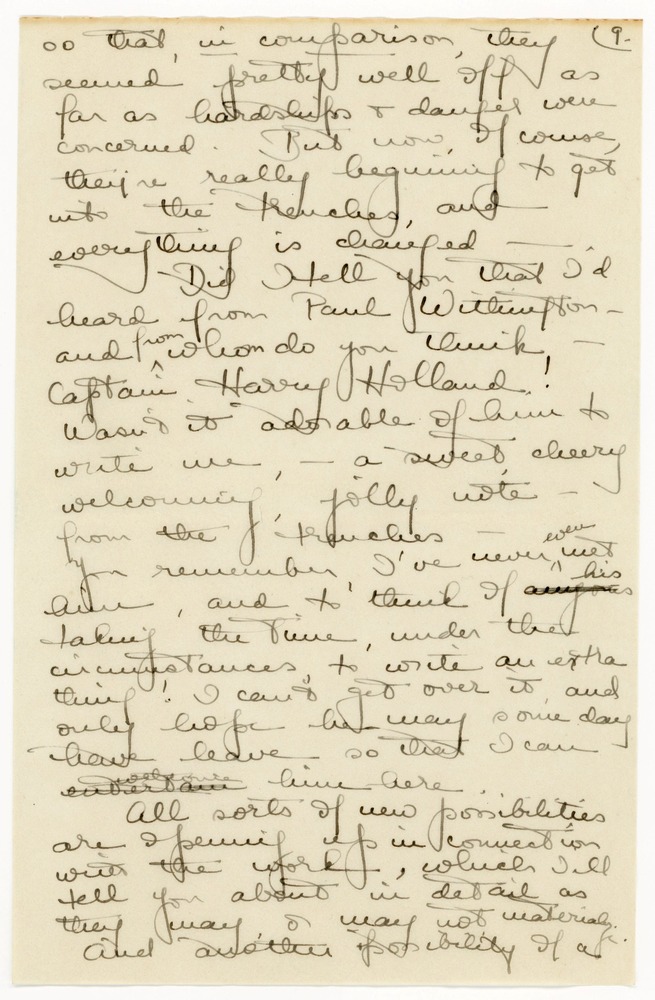 so that, in comparison, they (9-
seemed pretty well off as
far as hardships & danger were
concerned. But now, of course,
they're really beginning to get
into the trenches, and
everything is changed —.
Did I tell you that I'd
heard from Paul Withington —
and from whom do you think, —
Captain Harry Holland!
Wasn't it adorable of him to
write me, — a sweet, cheery
welcoming, jolly note —
from the trenches —
You remember, I've never even met
him, and to think of anyone his
taking the time, under the
circumstances, to write an extra
thing! I can't get over it, and
only hope he may some day
have leave so that I can
entertain welcome him here.
All sorts of new possibilities
are opening up in connection
with the work, which I'll
tell you about in detail as
they may or may not materialize.
And another possibility of a